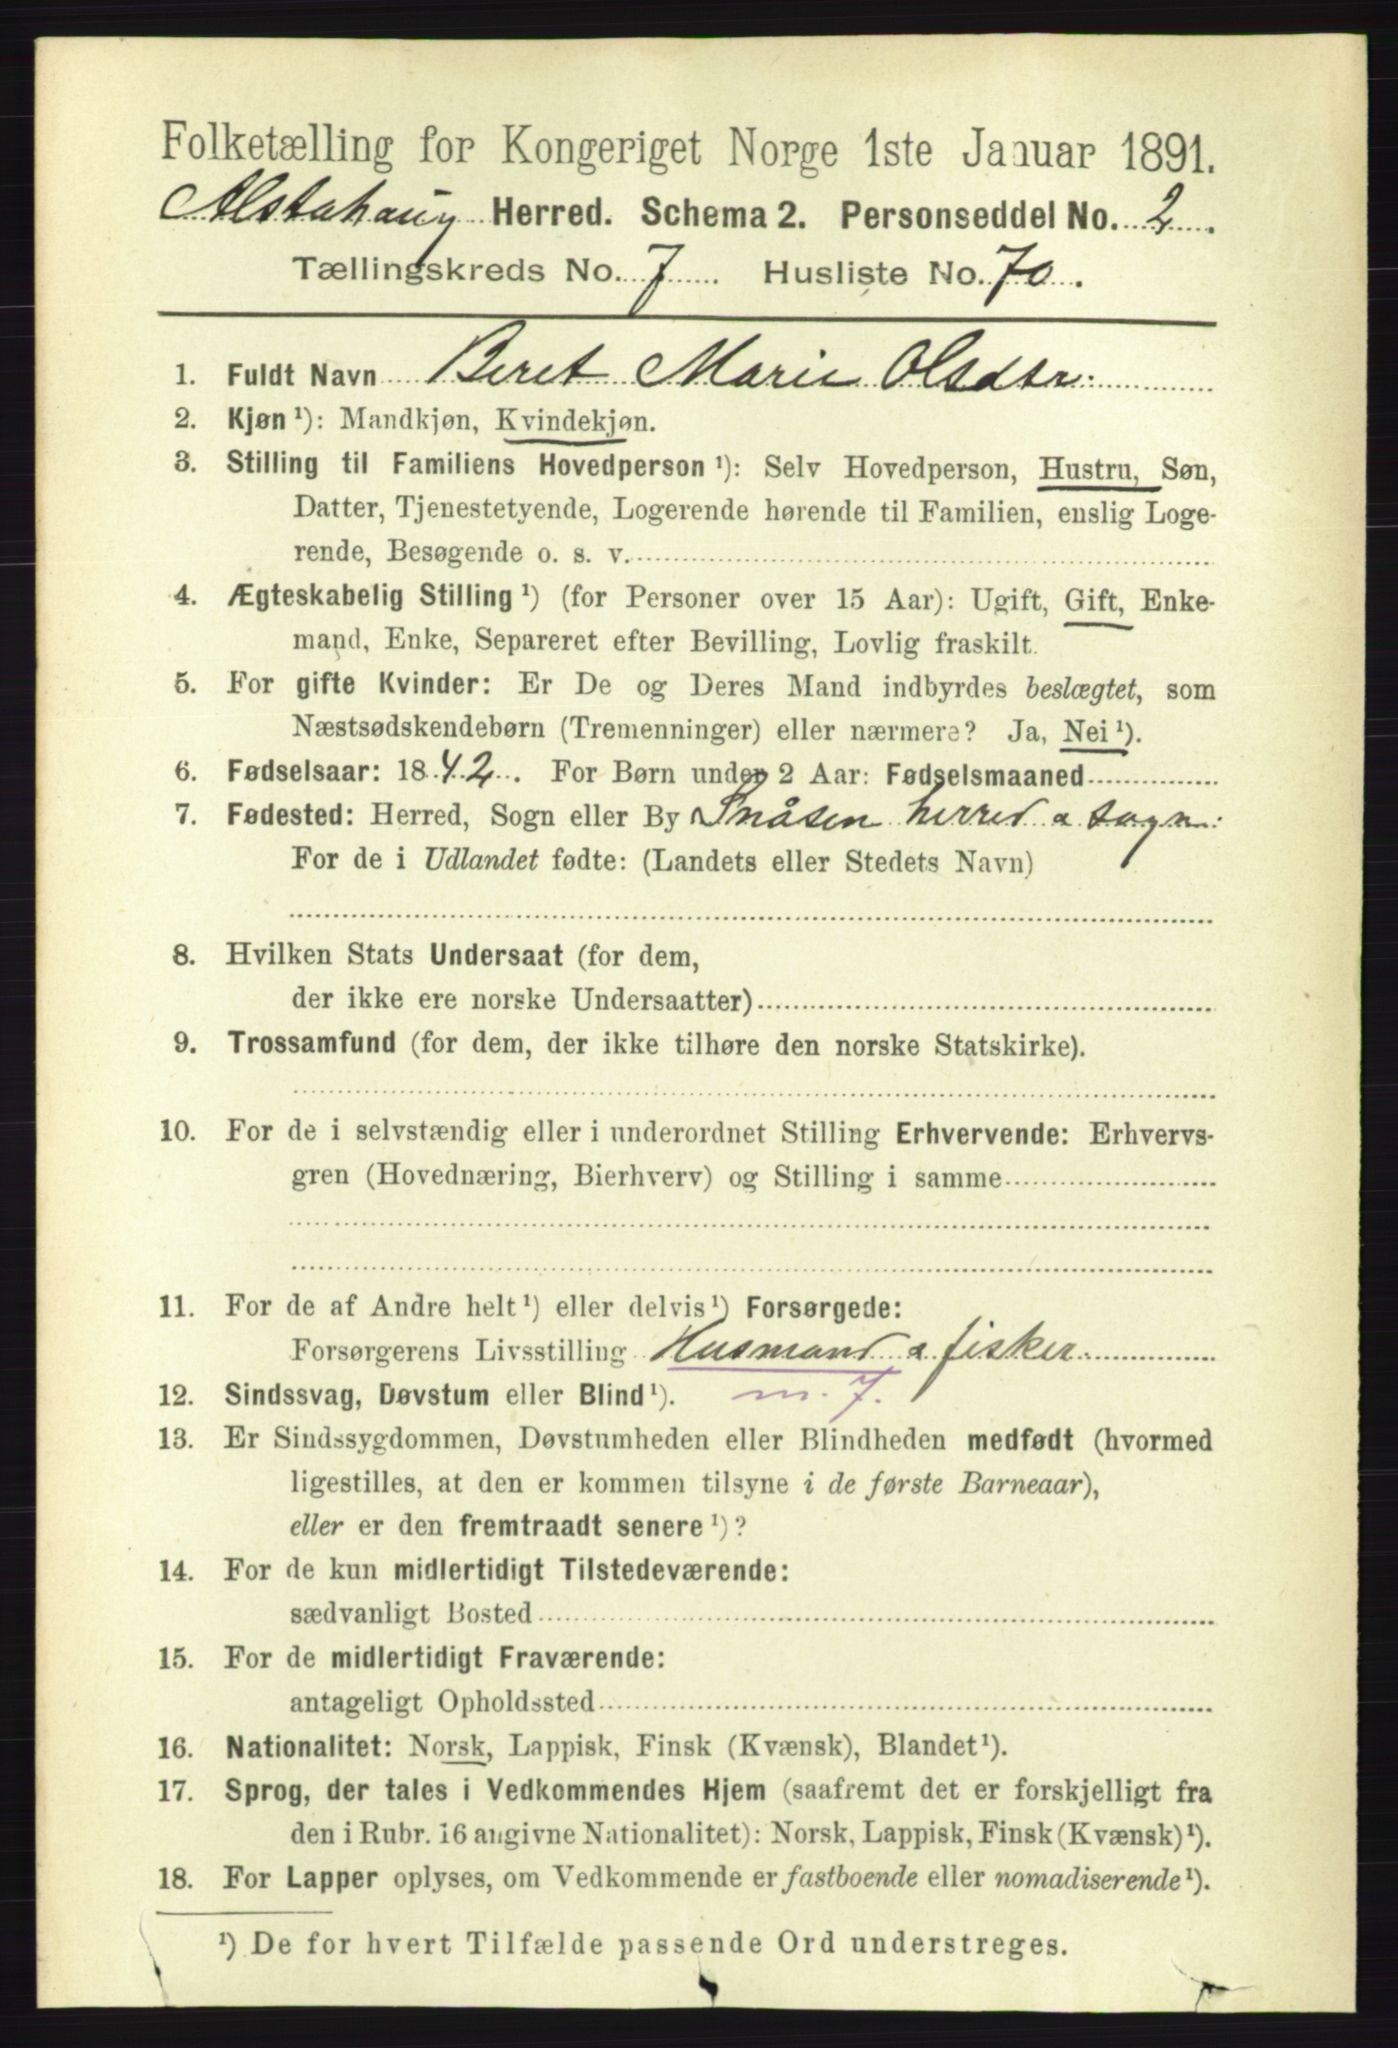 Folketælling for Kongeriget Norge 1ste Januar 1891.
Alstahaug Herred. Schema 2. Personseddel No. 2.
Tællingskreds No. 7 Husliste No. 70.
1. Fuldt Navn Beret Marie Olsdtr.
2. Kjøn ¹): Mandkjøn, Kvindekjøn.
3. Stilling til Familiens Hovedperson ¹): Selv Hovedperson, Hustru, Søn,
Datter, Tjenestetyende, Logerende hørende til Familien, enslig Loge-
rende, Besøgende o. s. v.
4. Ægteskabelig Stilling ¹) (for Personer over 15 Aar): Ugift, Gift, Enke-
mand, Enke, Separeret efter Bevilling, Lovlig fraskilt.
5. For gifte Kvinder: Er De og Deres Mand indbyrdes beslægtet, som
Næstsødskendebørn (Tremenninger) eller nærmere? Ja, Nei ¹).
6. Fødselsaar: 1842. For Børn under 2 Aar: Fødselsmaaned
7. Fødested: Herred, Sogn eller By Snåsen herred & sogn.
For de i Udlandet fødte: (Landets eller Stedets Navn)
8. Hvilken Stats Undersaat (for dem,
der ikke ere norske Undersaatter)
9. Trossamfund (for dem, der ikke tilhøre den norske Statskirke).
10. For de i selvstændig eller i underordnet Stilling Erhvervende: Erhvervs-
gren (Hovednæring, Bierhverv) og Stilling i samme
11. For de af Andre helt ¹) eller delvis ¹) Forsørgede:
Forsørgerens Livsstilling Husmand & fisker
12. Sindssvag, Døvstum eller Blind ¹). m. 7.
13. Er Sindssygdommen, Døvstumheden eller Blindheden medfødt (hvormed
ligestilles, at den er kommen tilsyne i de første Barneaar),
eller er den fremtraadt senere ¹)?
14. For de kun midlertidigt Tilstedeværende:
sædvanligt Bosted
15. For de midlertidigt Fraværende:
antageligt Opholdssted
16. Nationalitet: Norsk, Lappisk, Finsk (Kvænsk), Blandet ¹).
17. Sprog, der tales i Vedkommendes Hjem (saafremt det er forskjelligt fra
den i Rubr. 16 angivne Nationalitet): Norsk, Lappisk, Finsk (Kvænsk) ¹).
18. For Lapper oplyses, om Vedkommende er fastboende eller nomadiserende ¹).
¹) De for hvert Tilfælde passende Ord understreges.